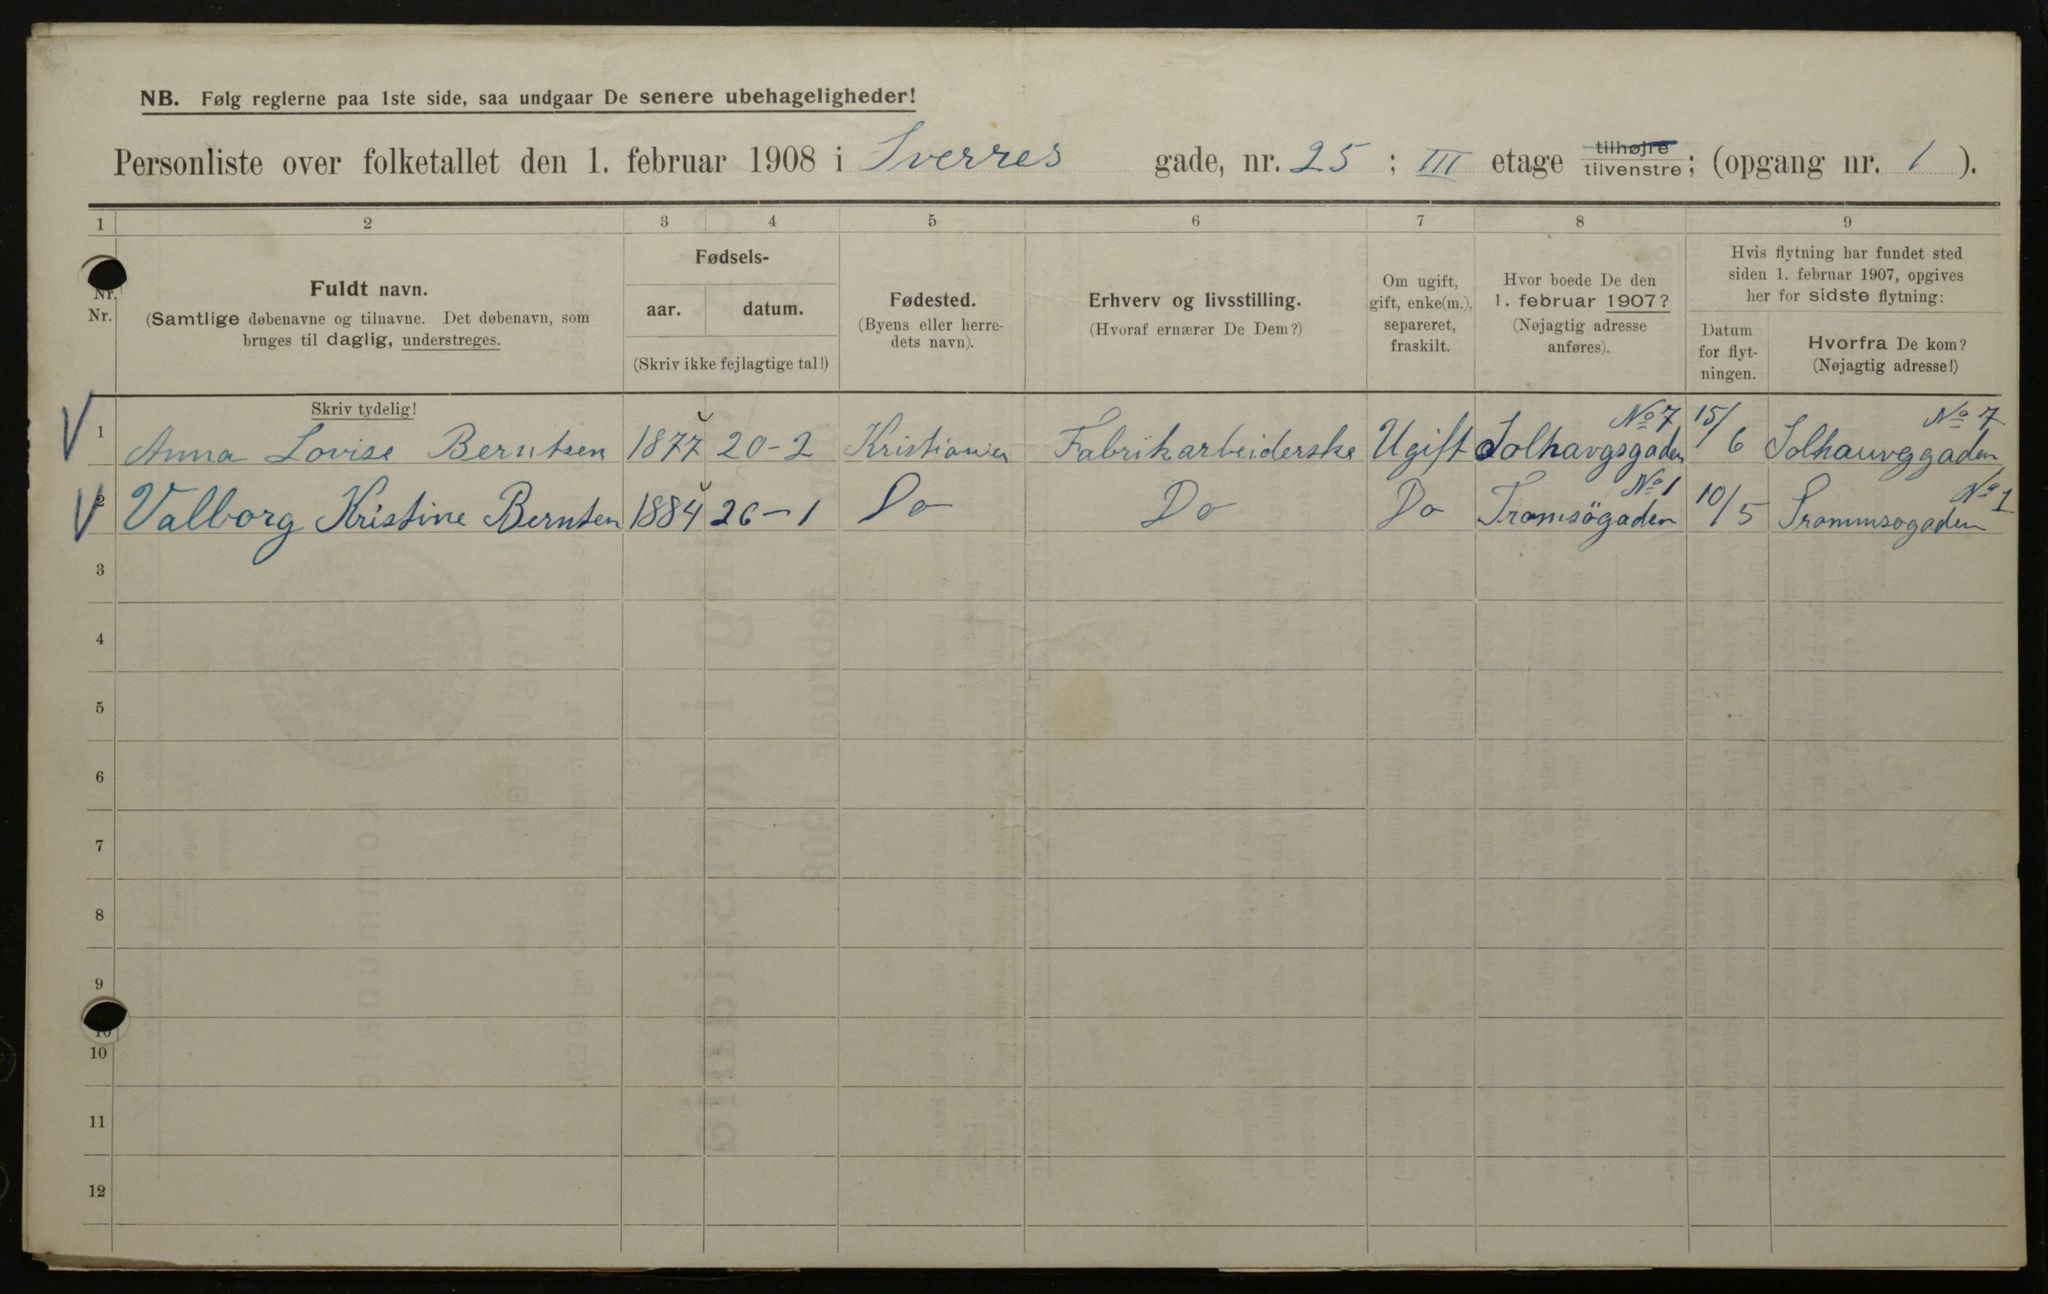 NB. Følg reglerne paa 1ste side, saa undgaar De senere ubehageligheder!
Personliste over folketallet den 1. februar 1908 i Sverres gade, nr. 25; III etage tilhøjre/tilvenstre; (opgang nr. 1).
1 2 3 4 5 6 7 8 9
Nr. Nr.
Fuldt navn.
(Samtlige døbenavne og tilnavne. Det døbenavn, som
bruges til daglig, understreges.
Skriv tydelig!
Fødsels-
aar. datum.
(Skriv ikke fejlagtige tal!)
Fødested.
(Byens eller herre-
dets navn).
Erhverv og livsstilling.
(Hvoraf ernærer De Dem?)
Om ugift,
gift, enke(m.),
separeret,
fraskilt.
Hvor boede De den
1. februar 1907?
(Nøjagtig adresse
anføres).
Hvis flytning har fundet sted
siden 1. februar 1907, opgives
her for sidste flytning:
Datum
for flyt-
ningen.
Hvorfra De kom?
(Nøjagtig adresse!)
1 Anna Lovise Berntsen 1877 20-2 Kristiania Fabrikarbeiderske Ugift Solhavgsgaden No 7 15/6 Solhauvggaden No 7
2 Valborg Kristine Bernten 1884 26-1 Do Do Do Tromsögaden No 1 10/5 Trommsogaden No 1
3
4
5
6
7
8
9
10
10
11
12